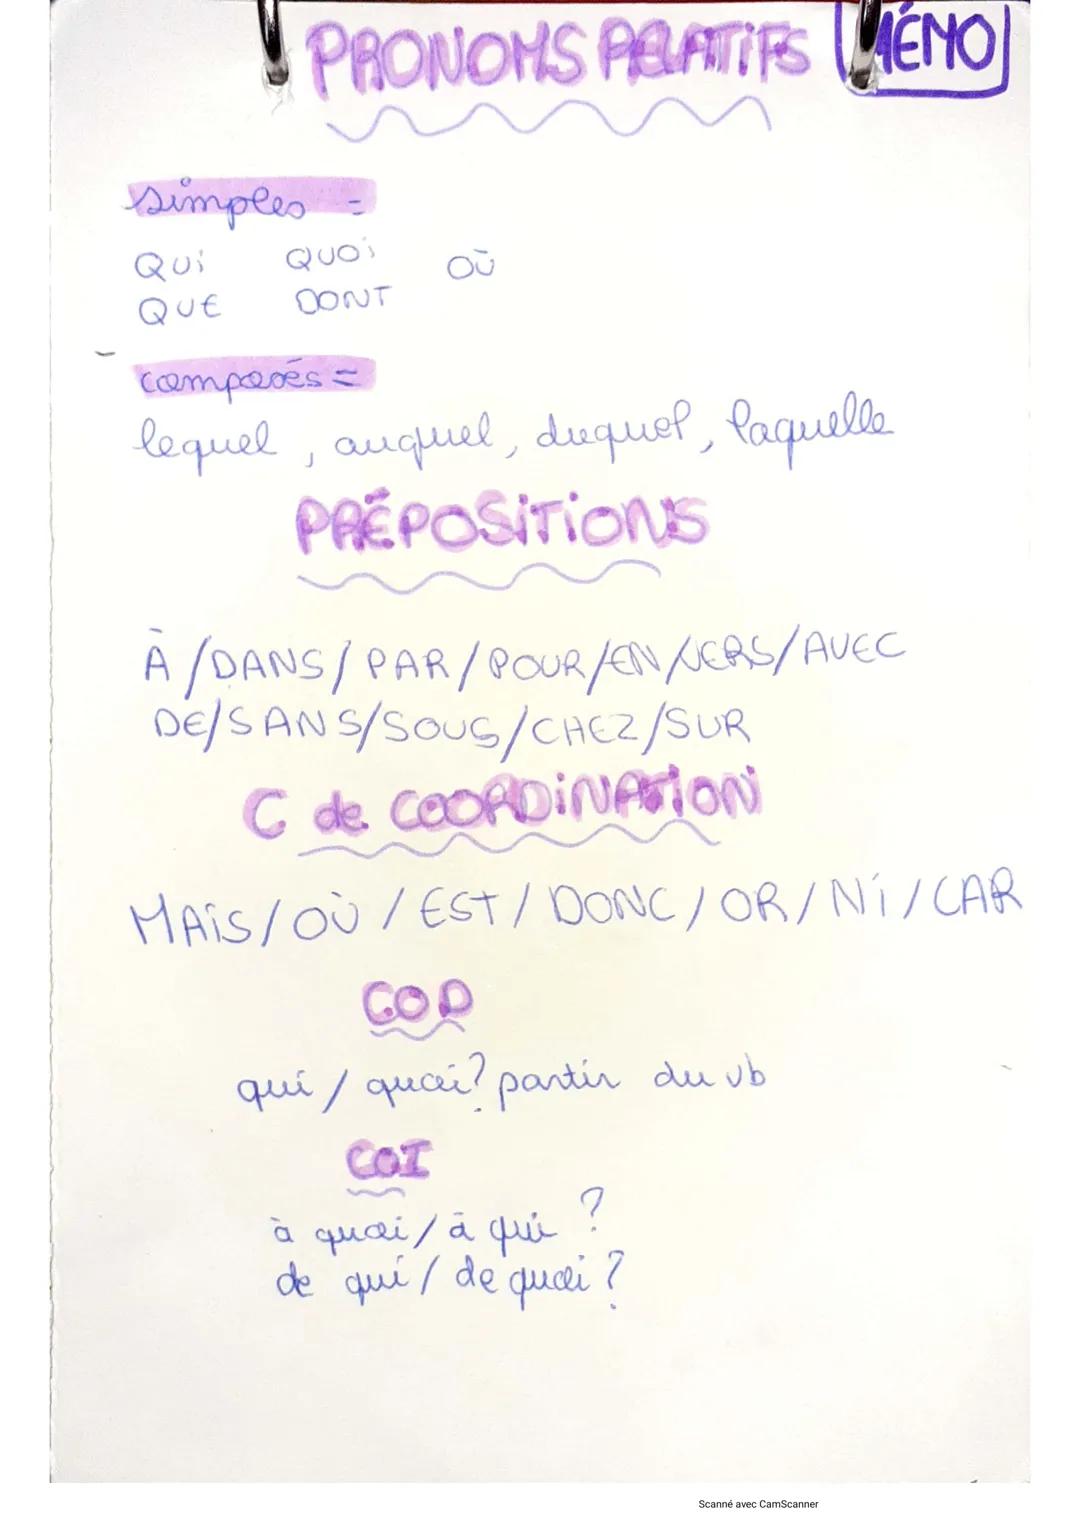 PRONOMS RELATIFS MÉMO
simples =
QUi QUOi OÙ
QUE DONT
composés =
lequel, auquel, duquel, laquelle
PRÉPOSITIONS
À / DANS / PAR / POUR / EN / VERS / AVEC
DE / SANS / SOUS / CHEZ / SUR
C de COORDINATION
MAIS / OÙ / EST / DONC / OR / NI / CAR
COD
qui / quoi? partir du vb
COI
à quoi / à qui ?
de qui / de quoi ?
Scanné avec CamScanner